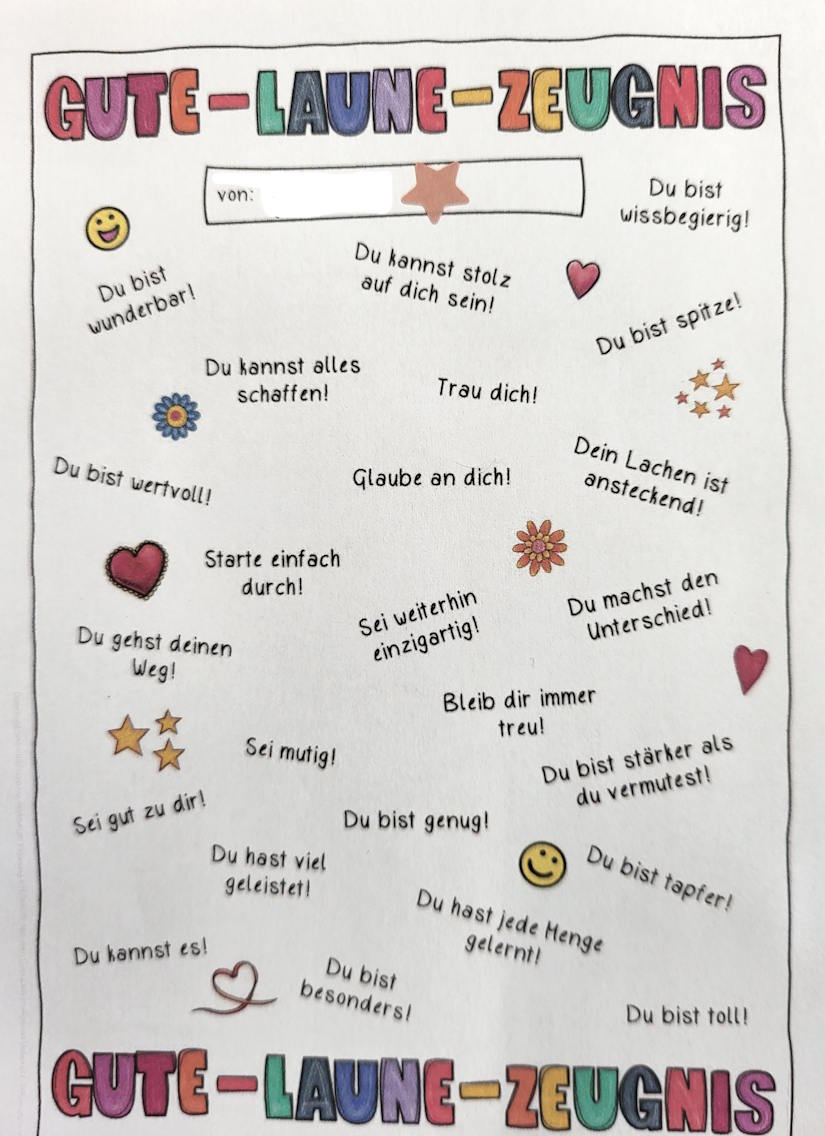 GUTE-LAUNE-ZEUGNIS
von:
Du bist
wissbegierig!
Du kannst stolz
auf dich sein!
Du bist
wunderbar!
Du bist spitze!
Du kannst alles
schaffen!
Trau dich!
Dein Lachen ist
ansteckend!
Du bist wertvoll!
Glaube an dich!
Starte einfach
durch!
Sei weiterhin
einzigartig!
Du machst den
Unterschied!
Du gehst deinen
Weg!
Bleib dir immer
treu!
Sei mutig!
Du bist stärker als
du vermutest!
Sei gut zu dir!
Du bist genug!
Du hast viel
geleistet!
Du bist tapfer!
Du hast jede Menge
gelernt!
Du kannst es!
Du bist
besonders!
Du bist toll!
GUTE-LAUNE-ZEUGNIS